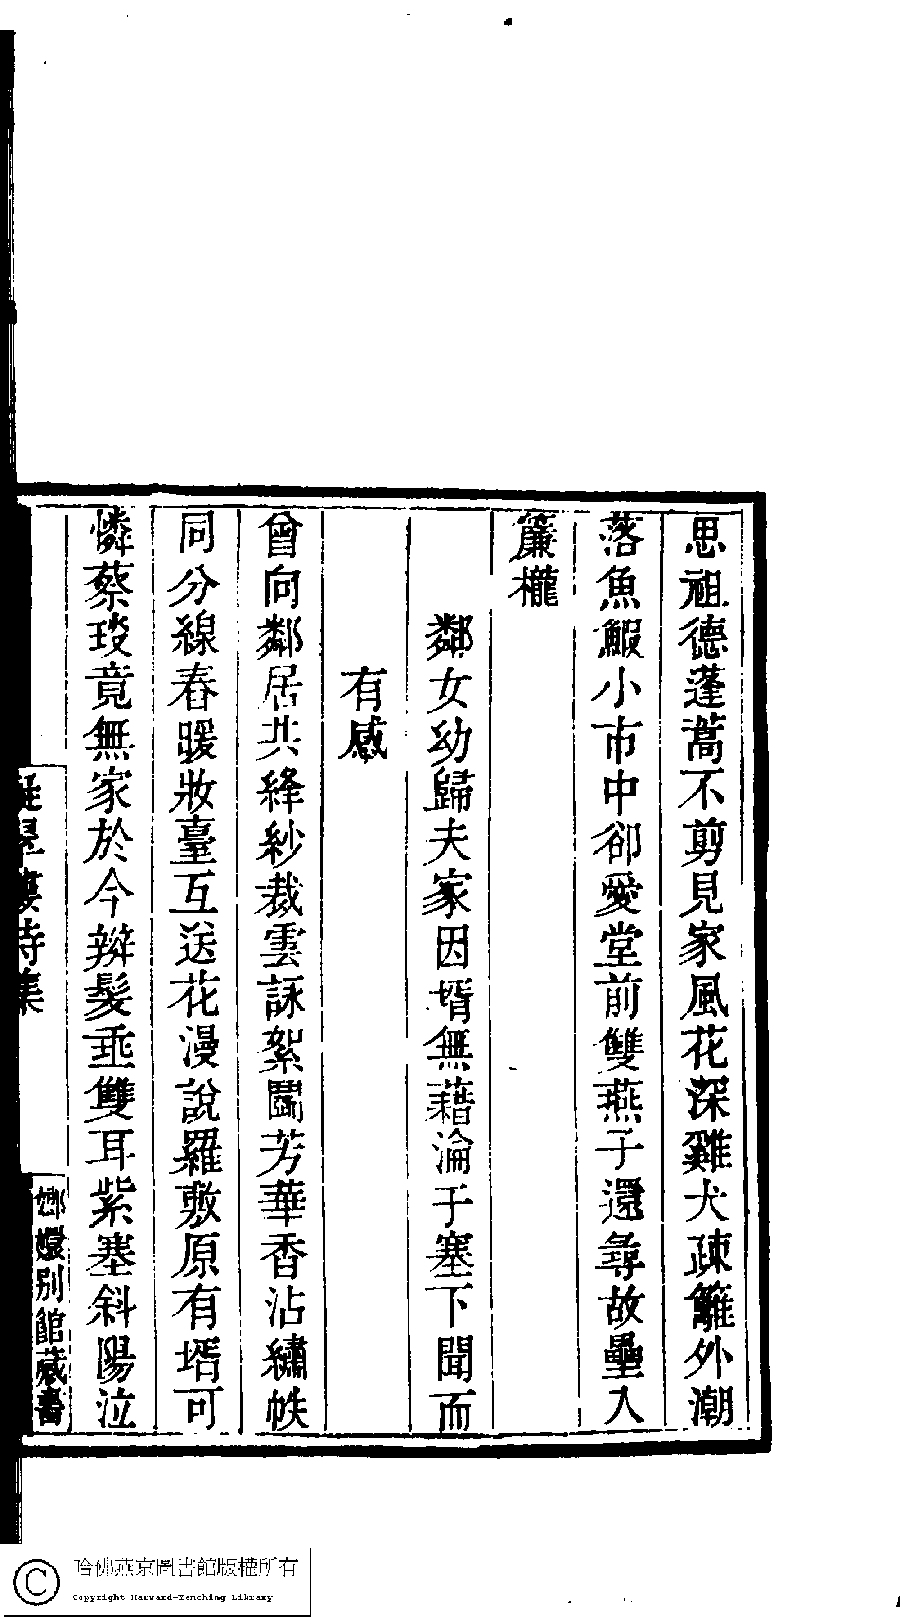 思祖德蓬蒿不剪見家風花深雞犬疎籬外潮
落魚鰕小市中卻愛堂前雙燕子還尋故壘入
簾櫳
鄰女幼歸夫家因壻無藉淪于塞下聞而
有感
曾向鄰居共絳紗裁雲詠絮鬭芳華香沾繡帙
同分線春暖妝臺互送花漫說羅敷原有壻可
憐蔡琰竟無家於今辮髮垂雙耳紫塞斜陽泣
詩集
嫏嬛别館藏書
哈佛燕京圖書館版權所有
Copyright Harvard-Yenching Library